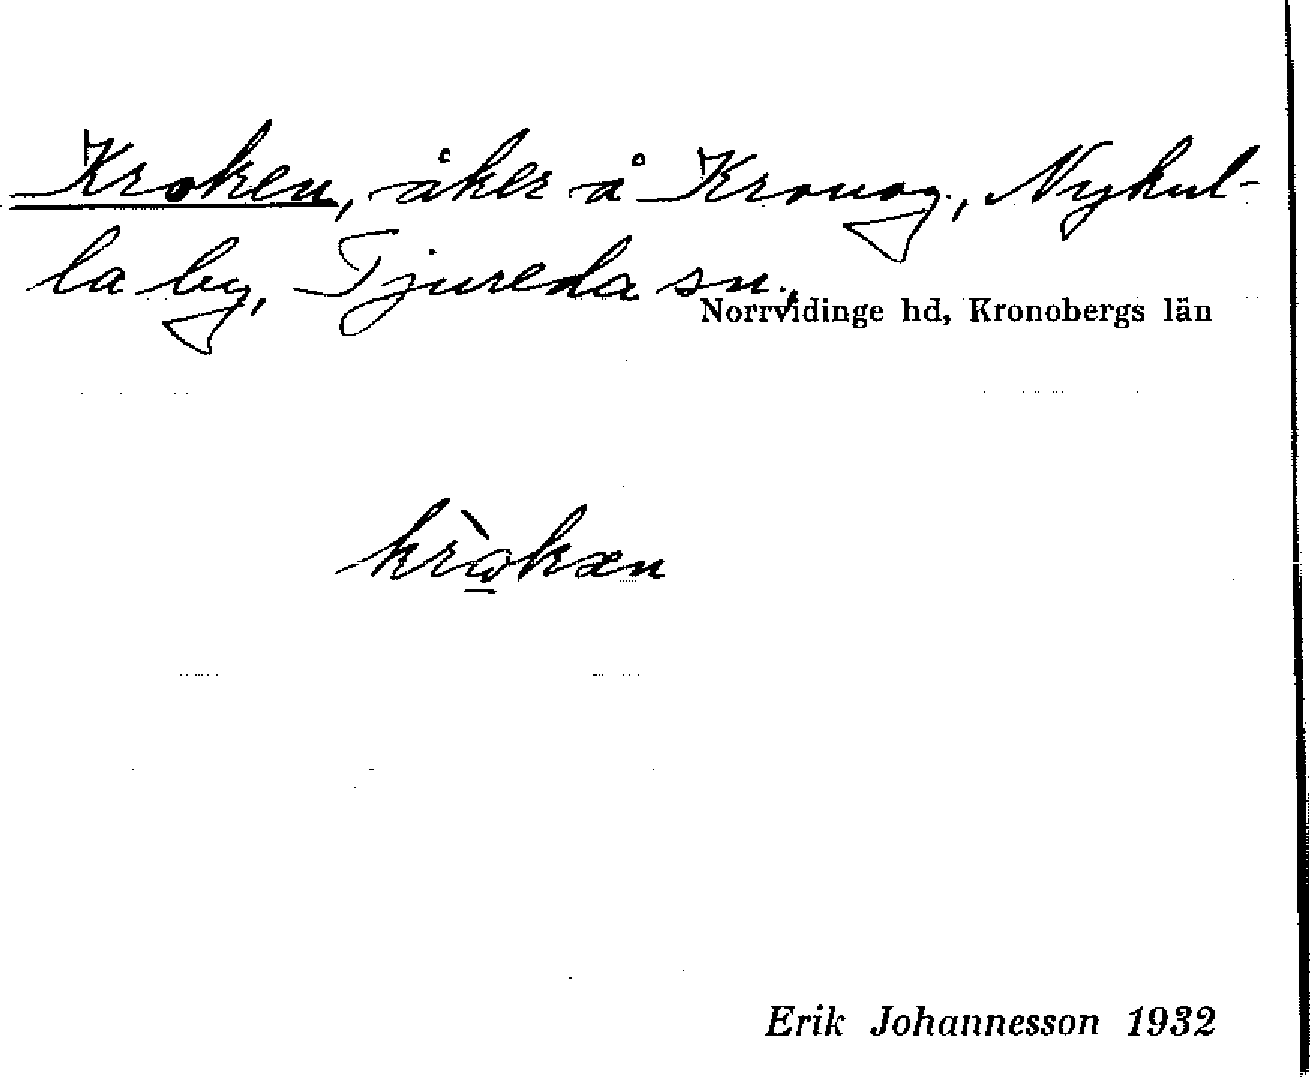 Kroken, åker å Kronog., Nykul-
la by, Tjureda sn.,
Norrvidinge hd, Kronobergs län
krò̱kæn
Erik Johannesson 1932